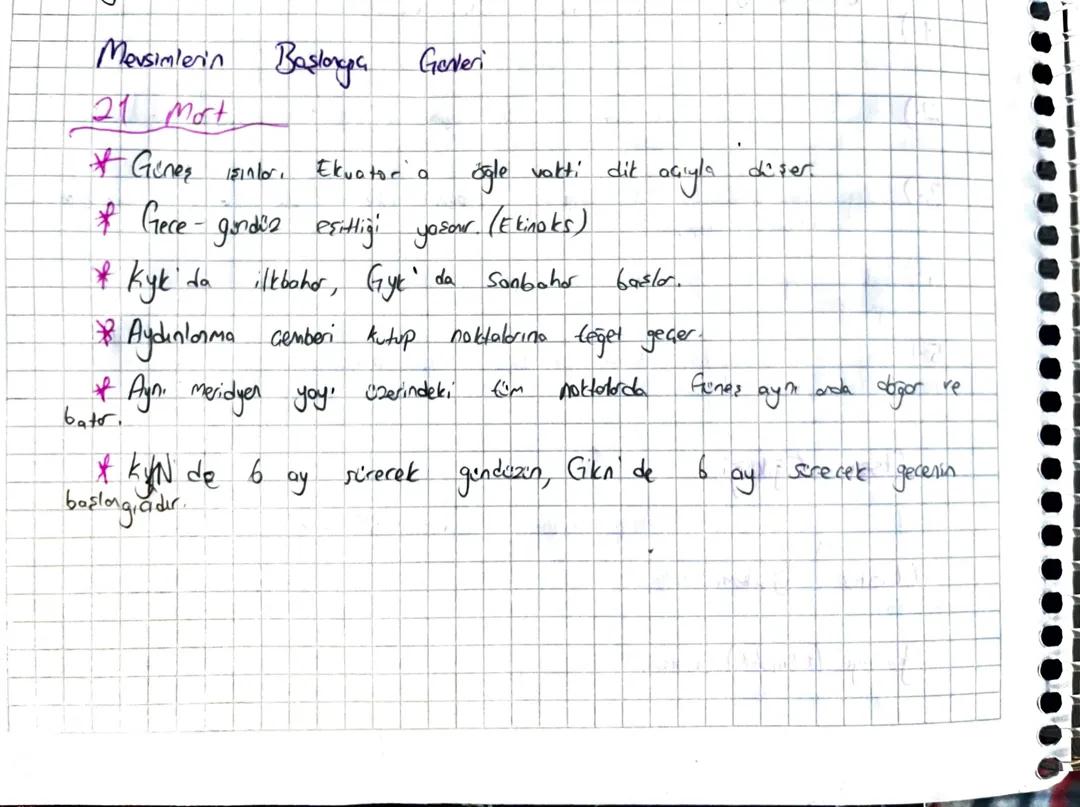 Mevsimlerin Başlangıç Günleri
21 Mart
* Güneş ışınları Ekvator'a öğle vakti dik açıyla düşer.
* Gece - gündüz eşitliği yaşanır. (Ekinoks)
* Kyk'da ilkbahar, Gyk'da sonbahar başlar.
* Aydınlanma çemberi kutup noktalarına teğet geçer.
* Aynı meridyen yayı üzerindeki tüm noktalarda Güneş aynı anda doğar ve
batar.
* KYN de 6 ay sürecek gündüzün, Gkn'de 6 ay sürecek gecenin
başlangıcıdır.